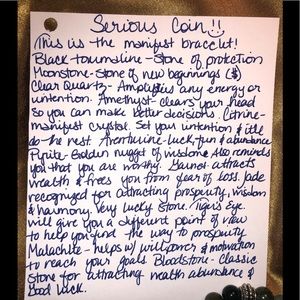 Serious Coin!!
This is the manifest bracelet!
Black tourmaline - Stone of protection
Moonstone - Stone of new beginnings ($)
Clear Quartz - Amplifies any energy or
intention. Amethyst - clears your head
so you can make better decisions. Citrine -
manifest crystal. Set your intention & it'll
do the rest. Aventurine - luck, fun & abundance
Pyrite - Golden nugget of wisdom also reminds
you that you are worthy. Garnet attracts
wealth & frees you from fear of loss. Jade
recognized for attracting prosperity, wisdom
& harmony. Very lucky stone. Tigers Eye.
will give you a different point of view
to help you find the way to prosperity
Malachite - helps w/ willpower & motivation
to reach your goals. Bloodstone - classic
Stone for attracting health abundance &
Good luck.